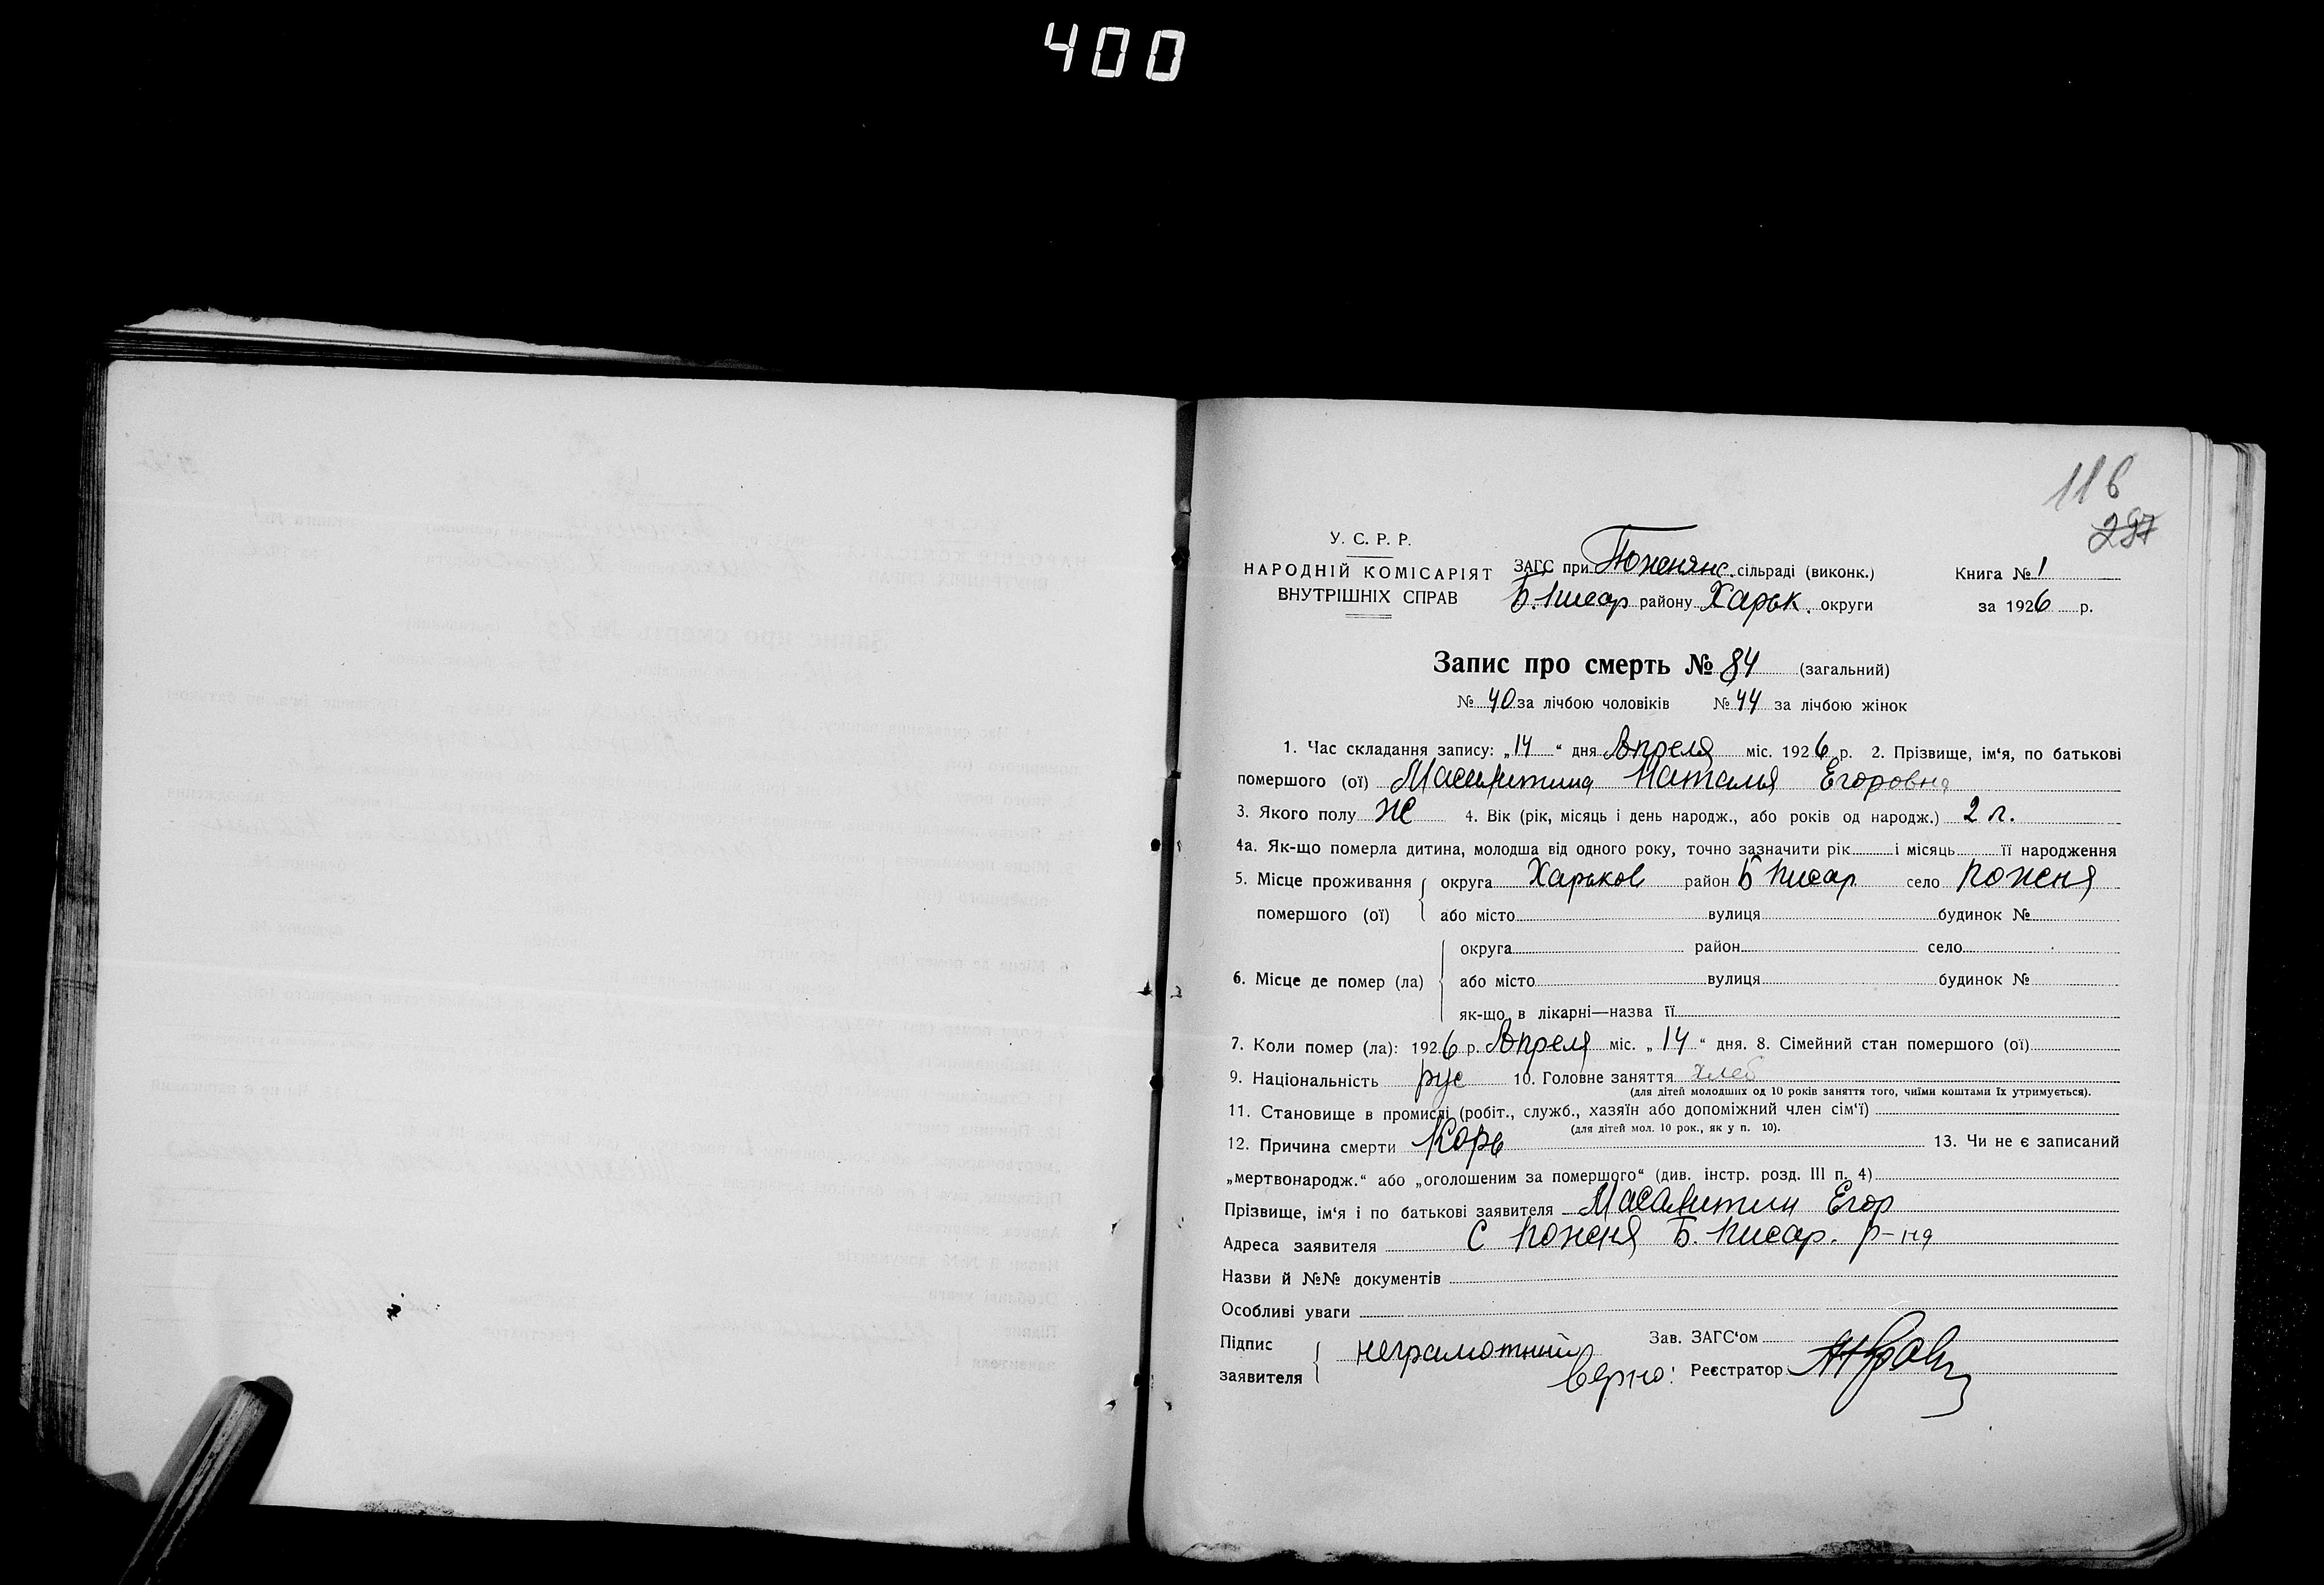 400
116
297
У. С. Р. Р.
НАРОДНІЙ КОМІСАРІЯТ
ВНУТРІШНІХ СПРАВ
ЗАГС при Пожнянс. сільраді (виконк.)
Б. Писар району Харьк. округи
Книга № 1
за 1926 р.
Запис про смерть № 84 (загальний)
№ 40 за лічбою чоловіків № 44 за лічбою жінок
1. Час складання запису: „14“ дня Апреля міс. 1926 р. 2. Прізвище, ім‘я, по батькові
помершого (ої) Масалитина Наталья Егоровна
3. Якого полу Ж 4. Вік (рік, місяць і день народж., або років од народж.) 2 г.
4а. Як-що померла дитина, молодша від одного року, точно зазначити рік і місяць її народження
5. Місце проживання помершого (ої) округа Харьков район Б Писар село Пожня
або місто вулиця будинок №
6. Місце де помер (ла) округа район село
або місто вулиця будинок №
як-що в лікарні—назва її
7. Коли помер (ла): 1926 р. Апреля міс. „14“ дня. 8. Сімейний стан помершого (ої)
9. Національність рус 10. Головне заняття хлеб
(для дітей молодших од 10 років заняття того, чиїми коштами їх утримується).
11. Становище в промислі (робіт., служб., хазяїн або допоміжний член сім‘ї)
(для дітей мол. 10 рок., як у п. 10).
12. Причина смерти Корь 13. Чи не є записаний
„мертвонародж.“ або „оголошеним за помершого“ (див. інстр. розд. III п. 4)
Прізвище, ім‘я і по батькові заявителя Масалитин Егор
Адреса заявителя С Пожня Б. Писар. р-на
Назви й №№ документів
Особливі уваги
Підпис заявителя неграмотний Зав. ЗАГС‘ом
верно: Реєстратор